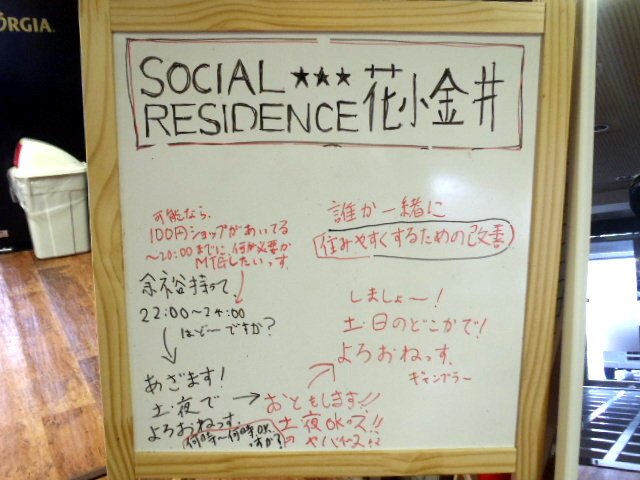 ORGIA
SOCIAL ★★★ 花小金井
RESIDENCE
誰か一緒に
住みやすくするための改善
しましょ〜!
土・日のどこかで!
よろおねっす、
ギャンブラー
おともします!!
土夜OKっズ!!
のヤバイズ!?
可能なら、
100円ショップがあいてる
〜20:00までに何が必要か
MTGしたいっす
余裕持って、
22:00〜24:00
はど〜ですか?
あざます!
土・夜で
よろおねっす、
何時〜何時OK
すか?